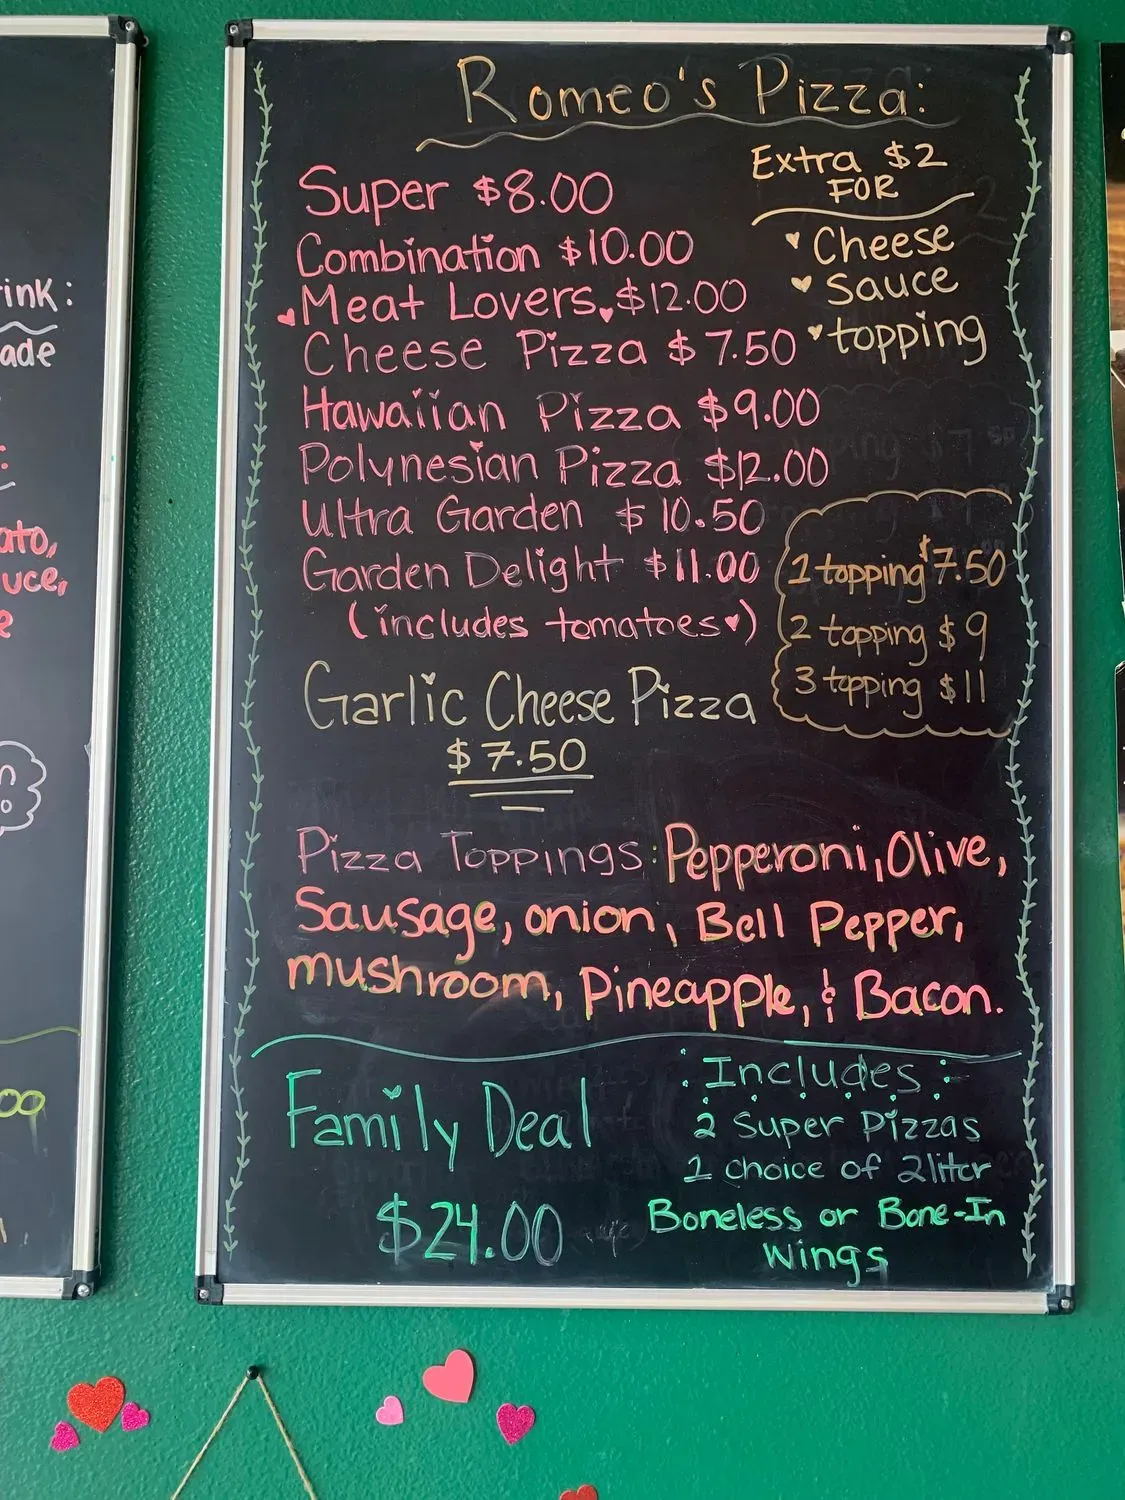 Romeo's Pizza:
Super $8.00
Combination $10.00
Meat Lovers $12.00
Cheese Pizza $7.50
Hawaiian Pizza $9.00
Polynesian Pizza $12.00
Ultra Garden $10.50
Garden Delight $11.00
(includes tomatoes♥)
Extra $2
FOR
♥ Cheese
♥ sauce
♥ topping
1 topping $7.50
2 topping $9
3 topping $11
Garlic Cheese Pizza
$7.50
Pizza Toppings: Pepperoni, Olive,
Sausage, onion, Bell Pepper,
mushroom, Pineapple, & Bacon.
Family Deal
$24.00
:Includes:
2 Super Pizzas
1 choice of 2liter
Boneless or Bone-In
Wings